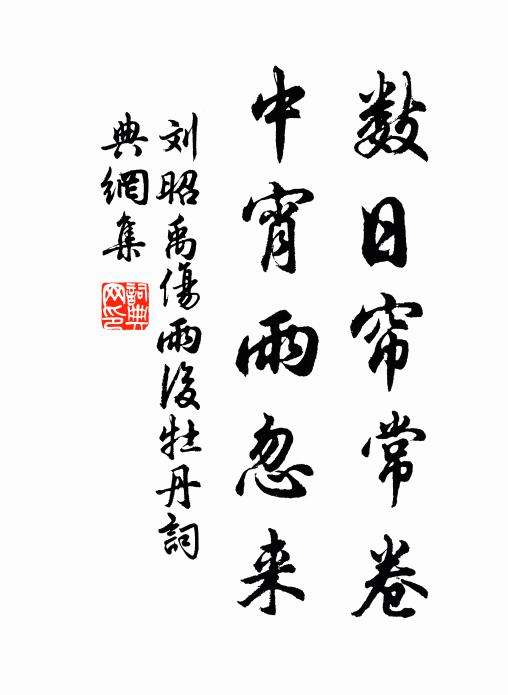 数日帘常卷
中宵雨忽来
刘昭禹傷雨後牡丹詞
典網集
詞典
网印